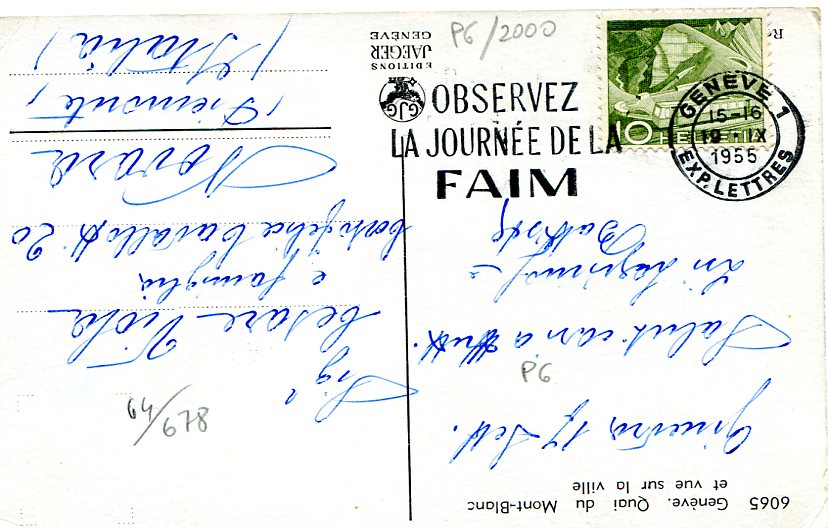 6065 Genève. Quai du Mont-Blanc
et vue sur la ville
Ginevra 17 Sett.
Saluti cari a tutti.
EDITIONS
JAEGER
GENÈVE
GJG
Sig.
Cesare Viola
e famiglia
20
Novara
(Piemonte)
(Italia)
OBSERVEZ
LA JOURNÉE DE LA
FAIM
GENÈVE 1
15-16
IX
1955
EXP. LETTRES
10
HELVETIA
P6/2000
P6
64/678
R